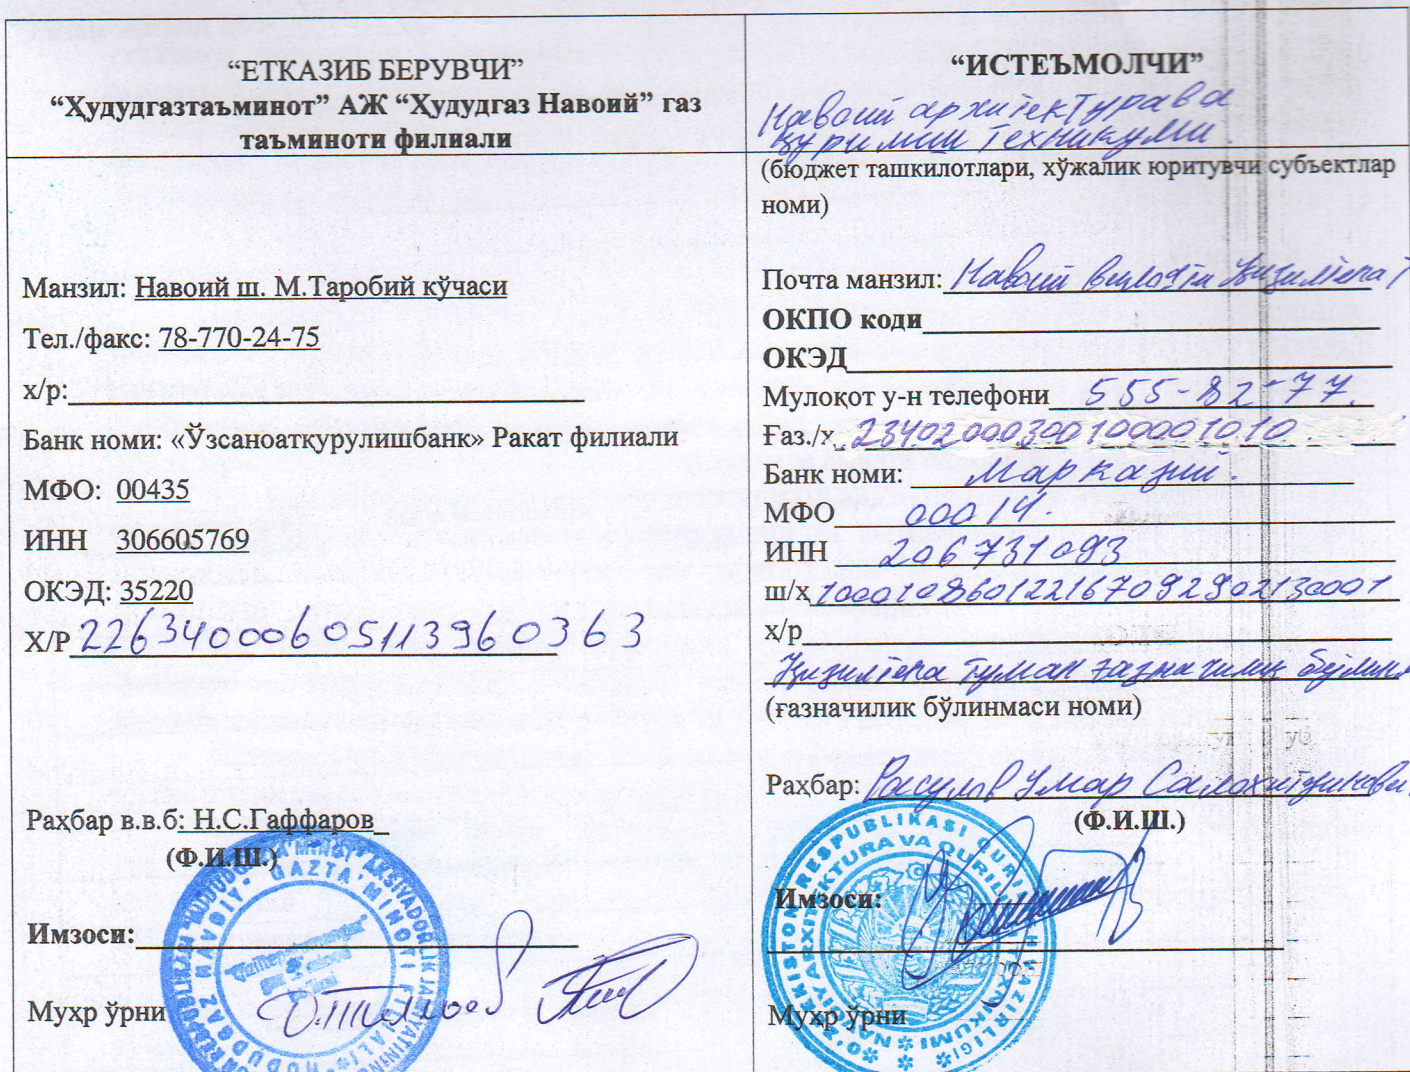 “ЕТКАЗИБ БЕРУВЧИ”
“Ҳудудгазтаъминот” АЖ “Ҳудудгаз Навоий” газ
таъминоти филиали
Манзил: Навоий ш. М.Таробий кўчаси
Тел./факс: 78-770-24-75
х/р:
Банк номи: «Ўзсаноатқурулишбанк» Ракат филиали
МФО: 00435
ИНН 306605769
ОКЭД: 35220
Х/Р 22634000605113960363
Раҳбар в.в.б: Н.С.Гаффаров
(Ф.И.Ш.)
Имзоси:
Муҳр ўрни
“ИСТЕЪМОЛЧИ”
Навоий архитектура ва
қурилиш техникуми
(бюджет ташкилотлари, хўжалик юритувчи субъектлар
номи)
Почта манзил: Навоий вилояти Қизилтепа т
ОКПО коди
ОКЭД
Мулоқот у-н телефони 555-82-77.
Ғаз./х 23402000300100001010.
Банк номи: Марказий.
МФО 00014.
ИНН 206731093
ш/ҳ 100010860122167092902130001
х/р
Қизилтепа туман ғазначилик
(ғазначилик бўлинмаси номи)
Раҳбар: Расулов Умар
(Ф.И.Ш.)
Имзоси:
Муҳр ўрни